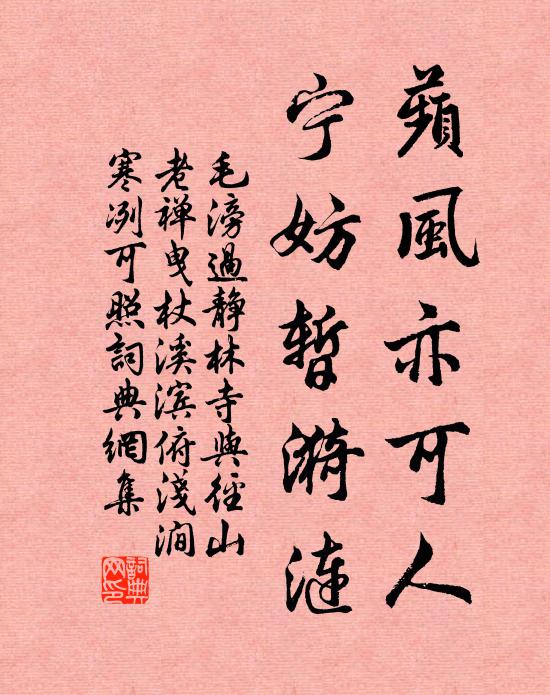 蘋風亦可人
宁妨暫漪漣
毛滂過静林寺與徑山
老禅曳杖溪滨俯淺澗
寒冽可照詞典網集
詞典
网印